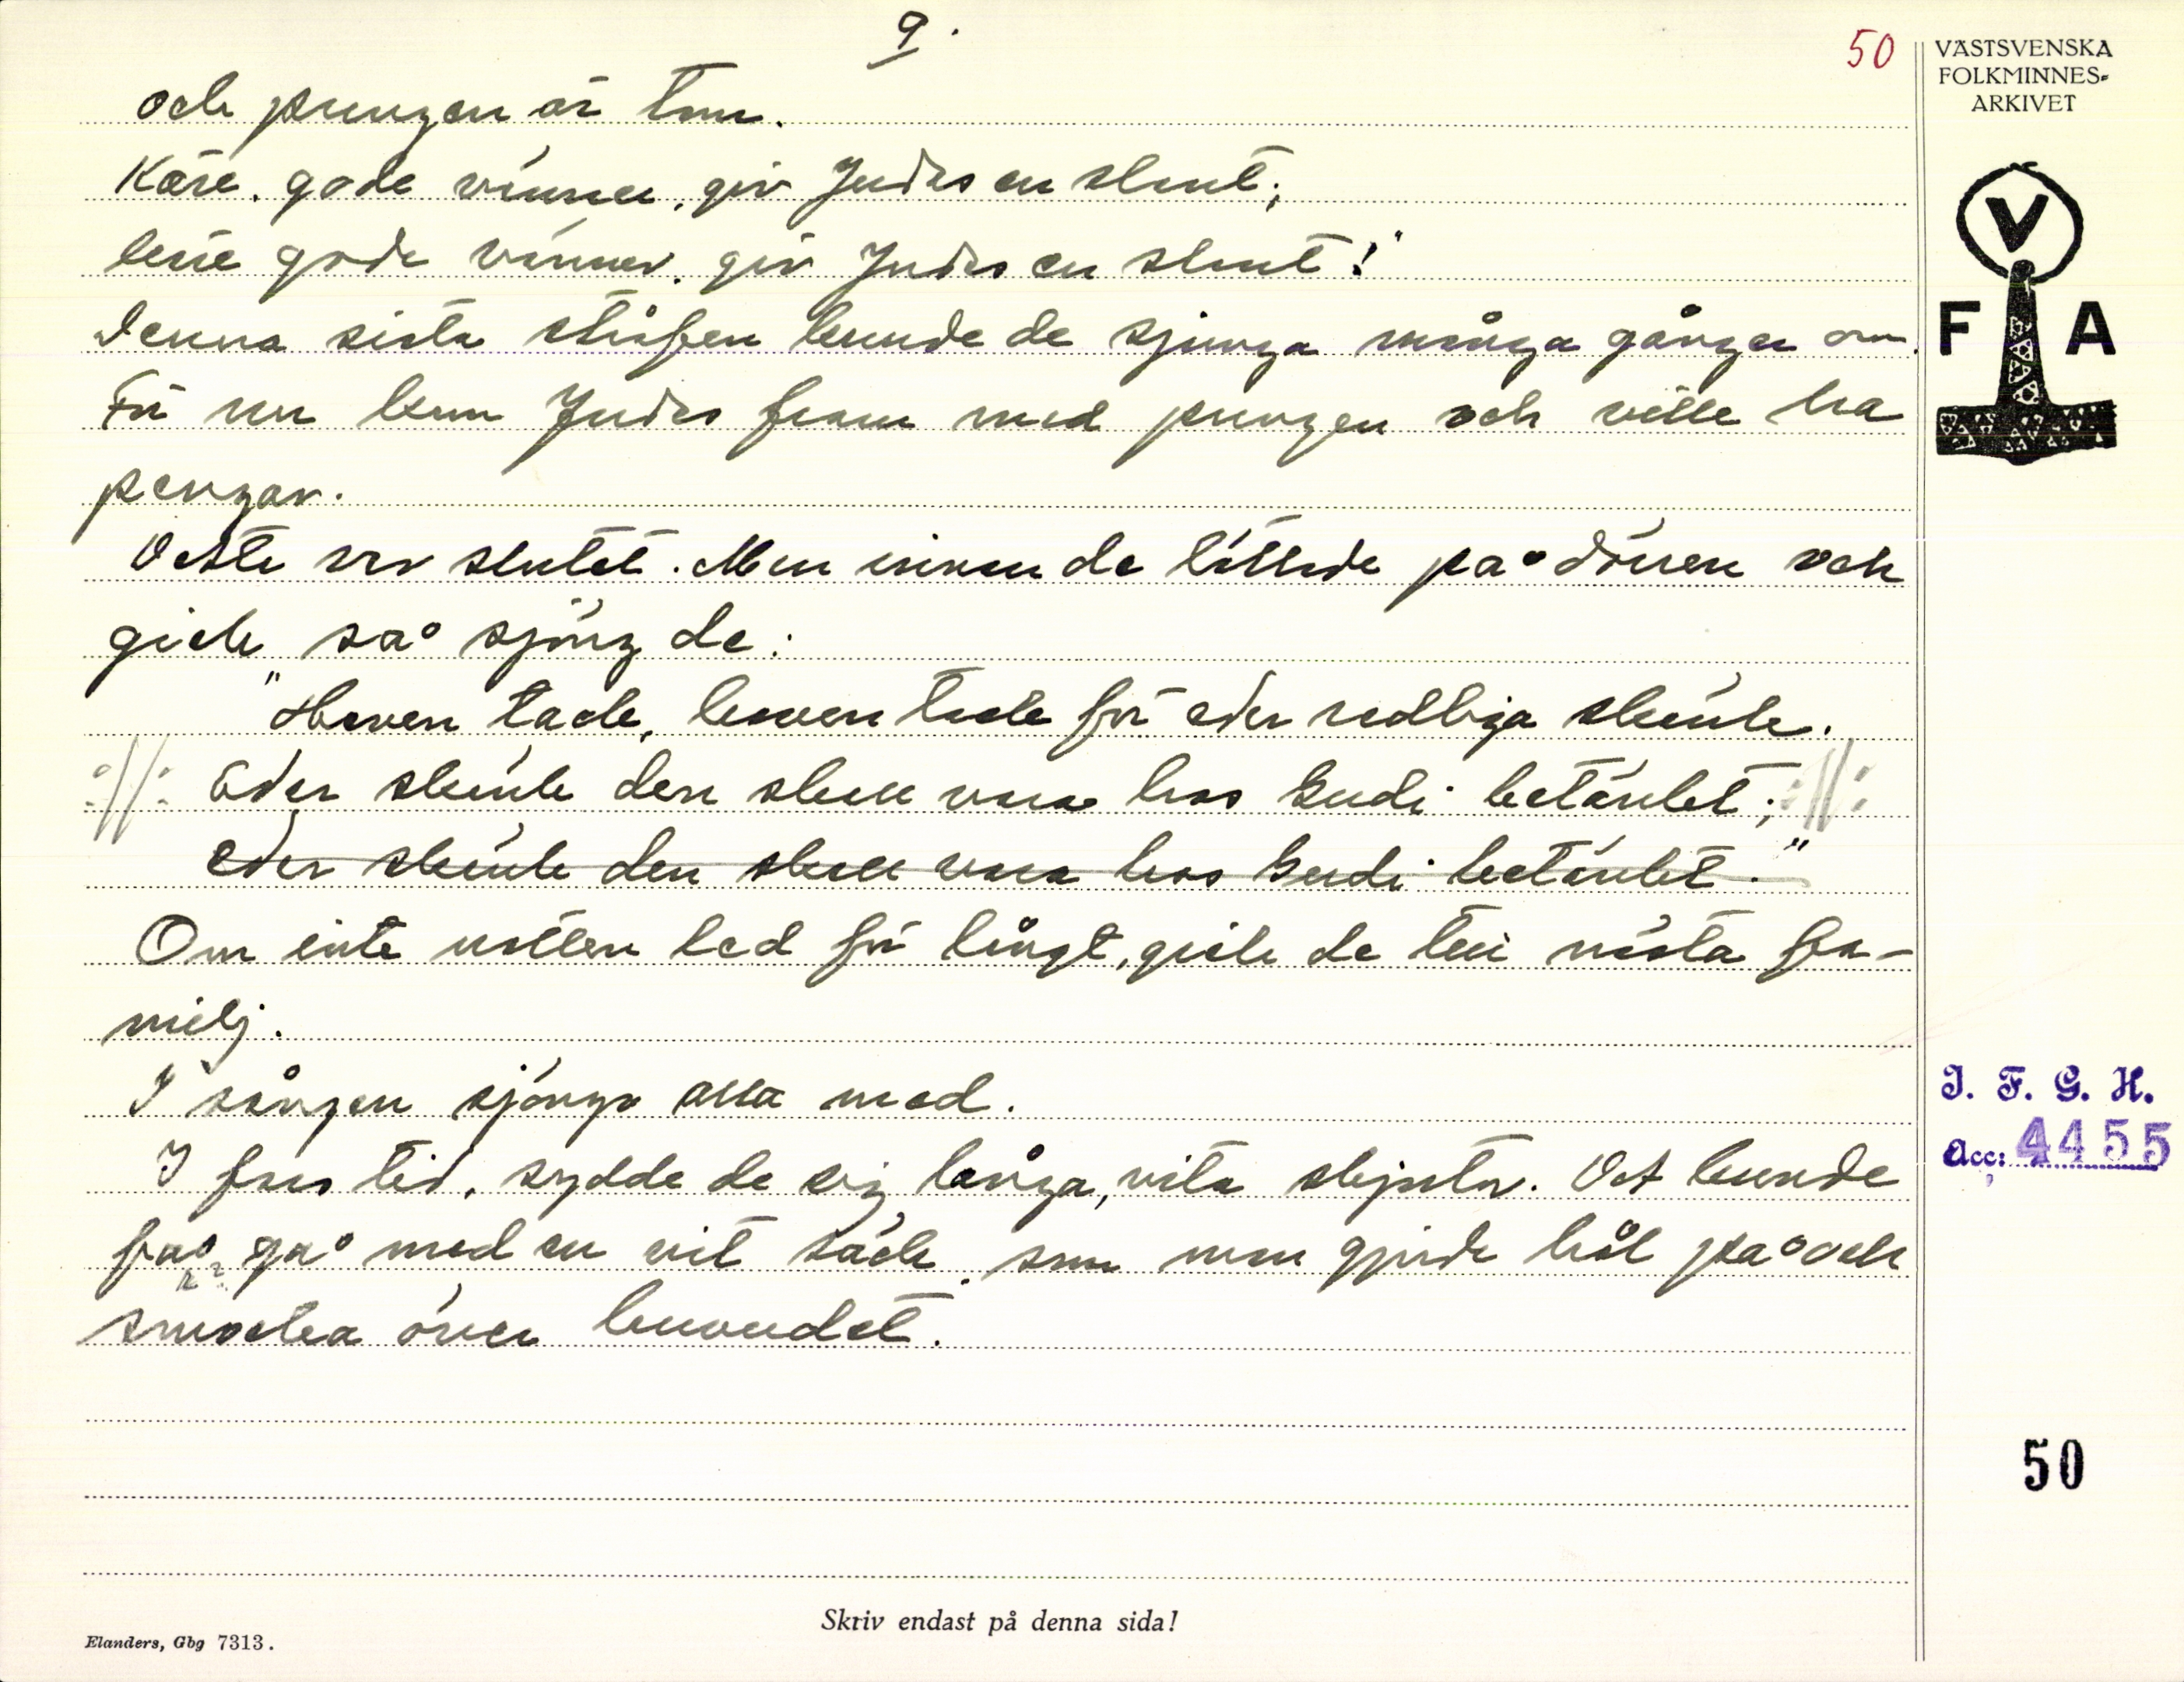 9.
50
VÄSTSVENSKA
FOLKMINNES-
ARKIVET
och pungen är tom.
Käre, gode vänner, giv Judas en slant;
käre gode vänner, giv Judas en slant!"
Denna sista strofen kunde de sjunga många gånger om.
För nu kom Judas fram med pungen och ville ha
pengar.
V
F A
Detta var slutet. Men innan de lättade på dörren och
gick så sjöng de:
"Haven tack, haven tack för eder redliga skänk.
://: Eder skänk den skall vara hos Gudi betänkt; ://:
eder skänk den skall vara hos Gudi betänkt."
Om inte natten led för långt, gick de till nästa fa-
milj.
I sången sjöngo alla med.
I fars tid, sydde de sig långa, vita skjortor. Det kunde
få gå med en vit säck, som man gjorde hål på och
smocka över huvudet.
I. F. G. H.
Acc: 4455
50
Skriv endast på denna sida!
Elanders, Gbg 7313.